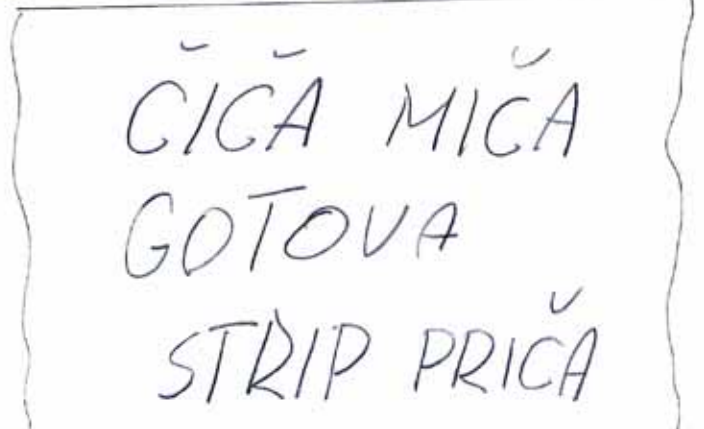 ČIČA MIČA
GOTOVA
STRIP PRIČA